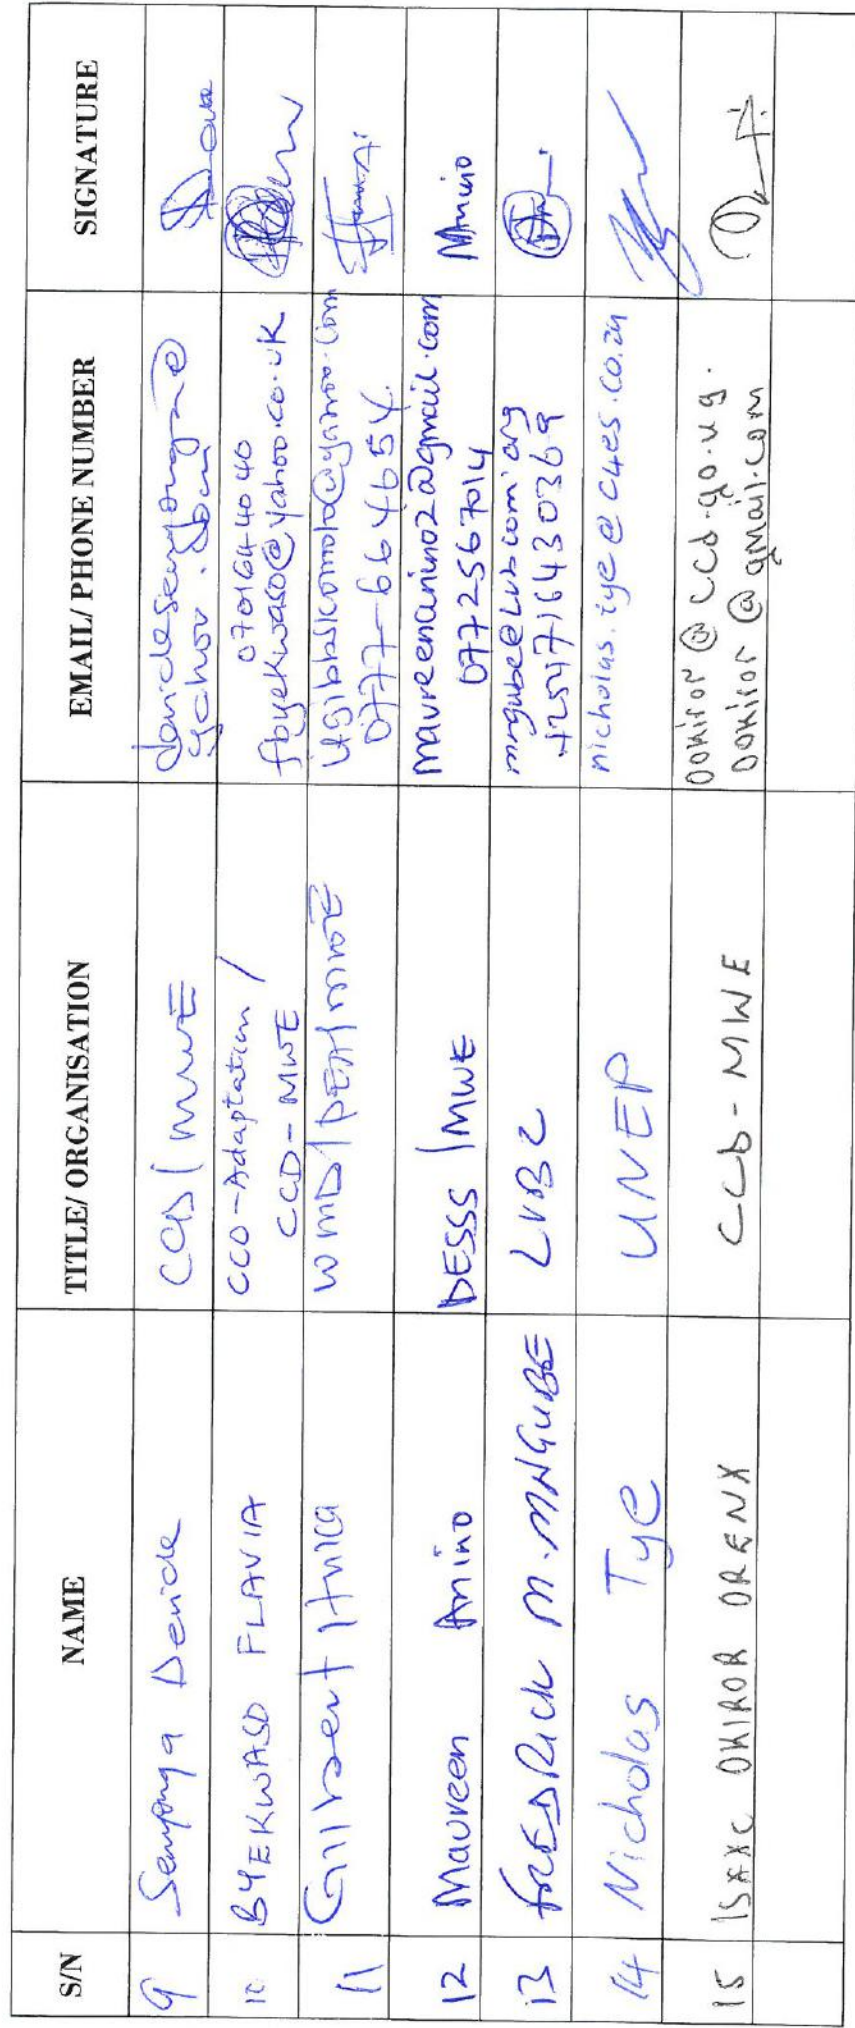 S/N NAME TITLE/ ORGANISATION EMAIL/ PHONE NUMBER SIGNATURE
9 Denick CCD/MWE
10 BYEKWASO FLAVIA CCO-Adaptation / CCD-MWE 0701644040 fbyekwaso@yahoo.co.uk
11 Gilbert WMD/ 0777-664654
12 Maureen Anino DESSS/MWE maureenanino2@gmail.com 0772567014 Manino
13 FREDRICK M. MNGUBE LVBC +254716430369
14 Nicholas Tye UNEP nicholas.tye@c4es.co.za
15 ISAAC OKIROR CCD-MWE ookiror@ccd.go.ug. ookiror@gmail.com